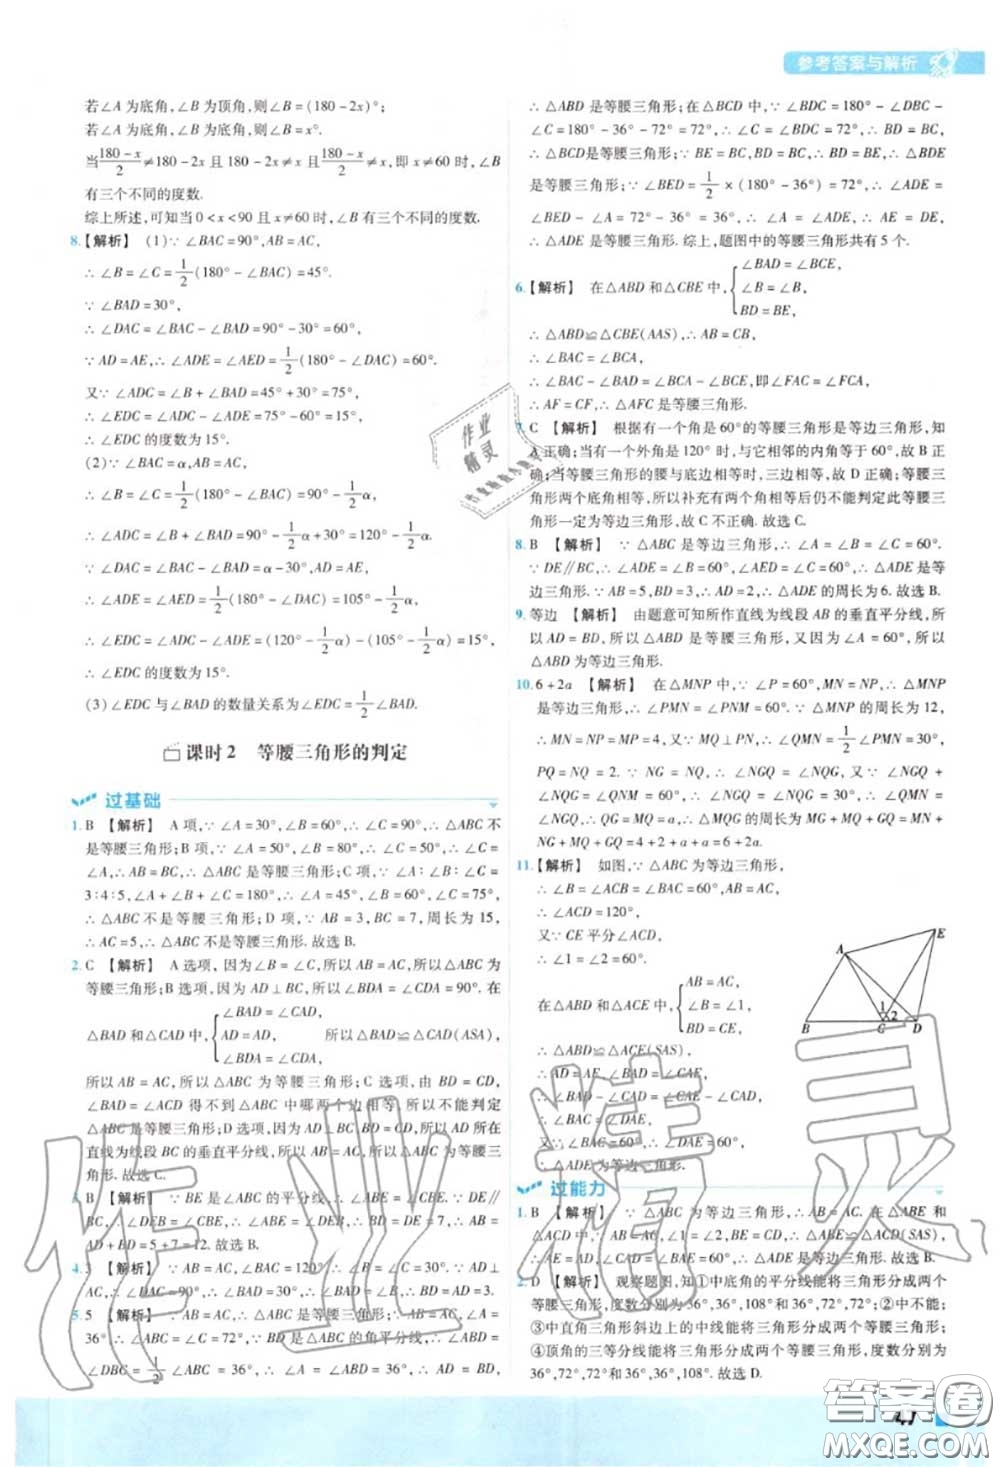 参考答案与解析
若∠A为底角,∠B为顶角,则∠B=(180-2x)°;
若∠A为底角,∠B为底角,则∠B=x°.
当(180-x)/2≠180-2x且180-2x≠x且(180-x)/2≠x,即x≠60时,∠B
有三个不同的度数.
综上所述,可知当0<x<90且x≠60时,∠B有三个不同的度数.
8.【解析】 (1)∵∠BAC=90°,AB=AC,
∴∠B=∠C=1/2(180°-∠BAC)=45°.
∵∠BAD=30°,
∴∠DAC=∠BAC-∠BAD=90°-30°=60°.
∵AD=AE,∴∠ADE=∠AED=1/2(180°-∠DAC)=60°.
又∵∠ADC=∠B+∠BAD=45°+30°=75°,
∴∠EDC=∠ADC-∠ADE=75°-60°=15°.
∴∠EDC的度数为15°.
(2)∵∠BAC=α,AB=AC,
∴∠B=∠C=1/2(180°-∠BAC)=90°-1/2α,
∴∠ADC=∠B+∠BAD=90°-1/2α+30°=120°-1/2α.
∵∠DAC=∠BAC-∠BAD=α-30°,AD=AE,
∴∠ADE=∠AED=1/2(180°-∠DAC)=105°-1/2α,
∴∠EDC=∠ADC-∠ADE=(120°-1/2α)-(105°-1/2α)=15°.
∴∠EDC的度数为15°.
(3)∠EDC与∠BAD的数量关系为∠EDC=1/2∠BAD.
课时2 等腰三角形的判定
过基础
1.B 【解析】 A项,∵∠A=30°,∠B=60°,∴∠C=90°,∴△ABC不
是等腰三角形;B项,∵∠A=50°,∠B=80°,∴∠C=50°,∴∠A=
∠C,∴AB=BC,∴△ABC是等腰三角形;C项,∵∠A∶∠B∶∠C=
3∶4∶5,∠A+∠B+∠C=180°,∴∠A=45°,∠B=60°,∠C=75°,
∴△ABC不是等腰三角形;D项,∵AB=3,BC=7,周长为15,
∴AC=5,∴△ABC不是等腰三角形.故选B.
2.C 【解析】 A选项,因为∠B=∠C,所以AB=AC,所以△ABC为
等腰三角形;B选项,因为AD⊥BC,所以∠BDA=∠CDA=90°.在
△BAD和△CAD中,{∠BAD=∠CAD, AD=AD, ∠BDA=∠CDA, 所以△BAD≌△CAD(ASA),
所以AB=AC,所以△ABC为等腰三角形;C选项,由BD=CD,
∠BAD=∠CAD得不到△ABC中哪两个边相等,所以不能判定
△ABC为等腰三角形;D选项,因为AD⊥BC,BD=CD,所以AD所在
直线为线段BC的垂直平分线,所以AB=AC,所以△ABC为等
腰三角形.故选C.
3.B 【解析】 ∵BE是∠ABC的平分线,∴∠ABE=∠EBC.∵DE∥
BC,∴∠DEB=∠EBC,∴∠ABE=∠DEB,∴BD=DE=7,∴AB=
AD+BD=5+7=12.故选B.
4.3 【解析】 ∵AB=AC,∠BAC=120°,∴∠B=∠C=30°.∵AD⊥
AC,∴∠DAC=90°,∴∠BAD=30°=∠B,∴AD=BD=3.
5.5 【解析】 ∵AB=AC,∴△ABC是等腰三角形;∵AB=AC,∠A=
36°,∴∠ABC=∠C=72°,∵BD是△ABC的角平分线,∴∠ABD=
∠DBC=1/2∠ABC=36°,∴∠A=∠ABD=36°,∴AD=BD,
∴△ABD是等腰三角形;在△BCD中,∵∠BDC=180°-∠DBC-
∠C=180°-36°-72°=72°,∴∠C=∠BDC=72°,∴BD=BC,
∴△BCD是等腰三角形;∵BE=BC,BD=BC,∴BD=BE,∴△BDE
是等腰三角形;∴∠BED=1/2×(180°-36°)=72°,∴∠ADE=
∠BED-∠A=72°-36°=36°,∴∠A=∠ADE,∴AE=DE,
∴△ADE是等腰三角形.综上,题图中的等腰三角形共有5个.
6.【解析】 在△ABD和△CBE中,{∠BAD=∠BCE, ∠B=∠B, BD=BE,
∴△ABD≌△CBE(AAS),∴AB=CB,
∴∠BAC=∠BCA,
∴∠BAC-∠BAD=∠BCA-∠BCE,即∠FAC=∠FCA,
∴AF=CF,∴△AFC是等腰三角形.
7.C 【解析】 根据有一个角是60°的等腰三角形是等边三角形,知
A正确;当有一个外角是120°时,与它相邻的内角等于60°,故B正
确;当等腰三角形的腰与底边相等时,三边相等,故D正确;等腰三
角形两个底角相等,所以补充有两个角相等后仍不能判定此等腰三
角形一定为等边三角形,故C不正确.故选C.
8.B 【解析】 ∵△ABC是等边三角形,∴∠A=∠B=∠C=60°.
∵DE∥BC,∴∠ADE=∠B=60°,∠AED=∠C=60°,∴△ADE是等
边三角形.∵AB=5,BD=3,∴AD=2,∴△ADE的周长为6.故选B.
9.等边 【解析】 由题意可知所作直线为线段AB的垂直平分线,所
以AD=BD,所以△ABD是等腰三角形,又因为∠A=60°,所以
△ABD为等边三角形.
10.6+2a 【解析】 在△MNP中,∵∠P=60°,MN=NP,∴△MNP
是等边三角形,∴∠PMN=∠PNM=60°.∵△MNP的周长为12,
∴MN=NP=MP=4.又∵MQ⊥PN,∴∠QMN=1/2∠PMN=30°,
PQ=NQ=2.∵NG=NQ,∴∠NGQ=∠NQG.又∵∠NGQ+
∠NQG=∠PNM=60°,∴∠NGQ=∠NQG=30°,∴∠QMN=
∠NGQ,∴QG=MQ=a,∴△MGQ的周长为MG+MQ+GQ=MN+
NG+MQ+GQ=4+2+a+a=6+2a.
11.【解析】 如图,∵△ABC为等边三角形,
∴∠B=∠ACB=∠BAC=60°,AB=AC,
∴∠ACD=120°,
又∵CE平分∠ACD,
∴∠1=∠2=60°.
在△ABD和△ACE中,{AB=AC, ∠B=∠1, BD=CE,
∴△ABD≌△ACE(SAS),
∴AD=AE,∠BAD=∠CAE,
∴∠BAD-∠CAD=∠CAE-∠CAD,
∴∠BAC=∠DAE,
∵∠BAC=60°,∴∠DAE=60°,
∴△ADE为等边三角形.
A
E
B
C
D
1
2
过能力
1.B 【解析】 ∵△ABC为等边三角形,∴AB=AC.在△ABE和
2.D 【解析】 观察题图,知①中底角的平分线能将三角形分成两个
等腰三角形,度数分别为36°,36°,108°和36°,72°,72°;②中不能;
③中直角三角形斜边上的中线能将三角形分成两个等腰三角形;
④顶角的三等分线能将三角形分成两个等腰三角形,度数分别为
36°,72°,72°和36°,36°,108°.故选D.
作业精灵
答案圈
MXQE.COM